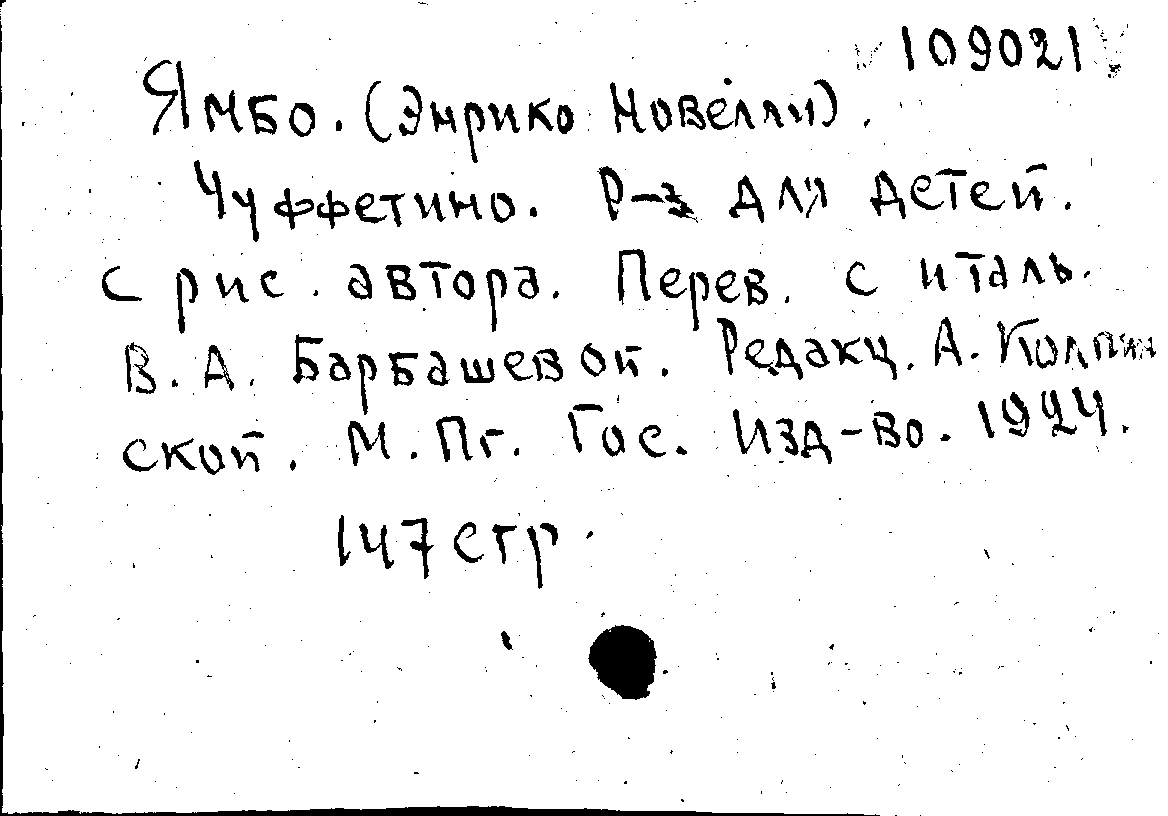 109021
Ямбо. (Энрико Новелли).
Чуффетино. Р-з для детей.
С рис. автора. Перев. с италь.
В. А. Барбашевой. Редакц. А. Колпин
ской. М. Пг. Гос. Изд-во. 1924.
147 стр.